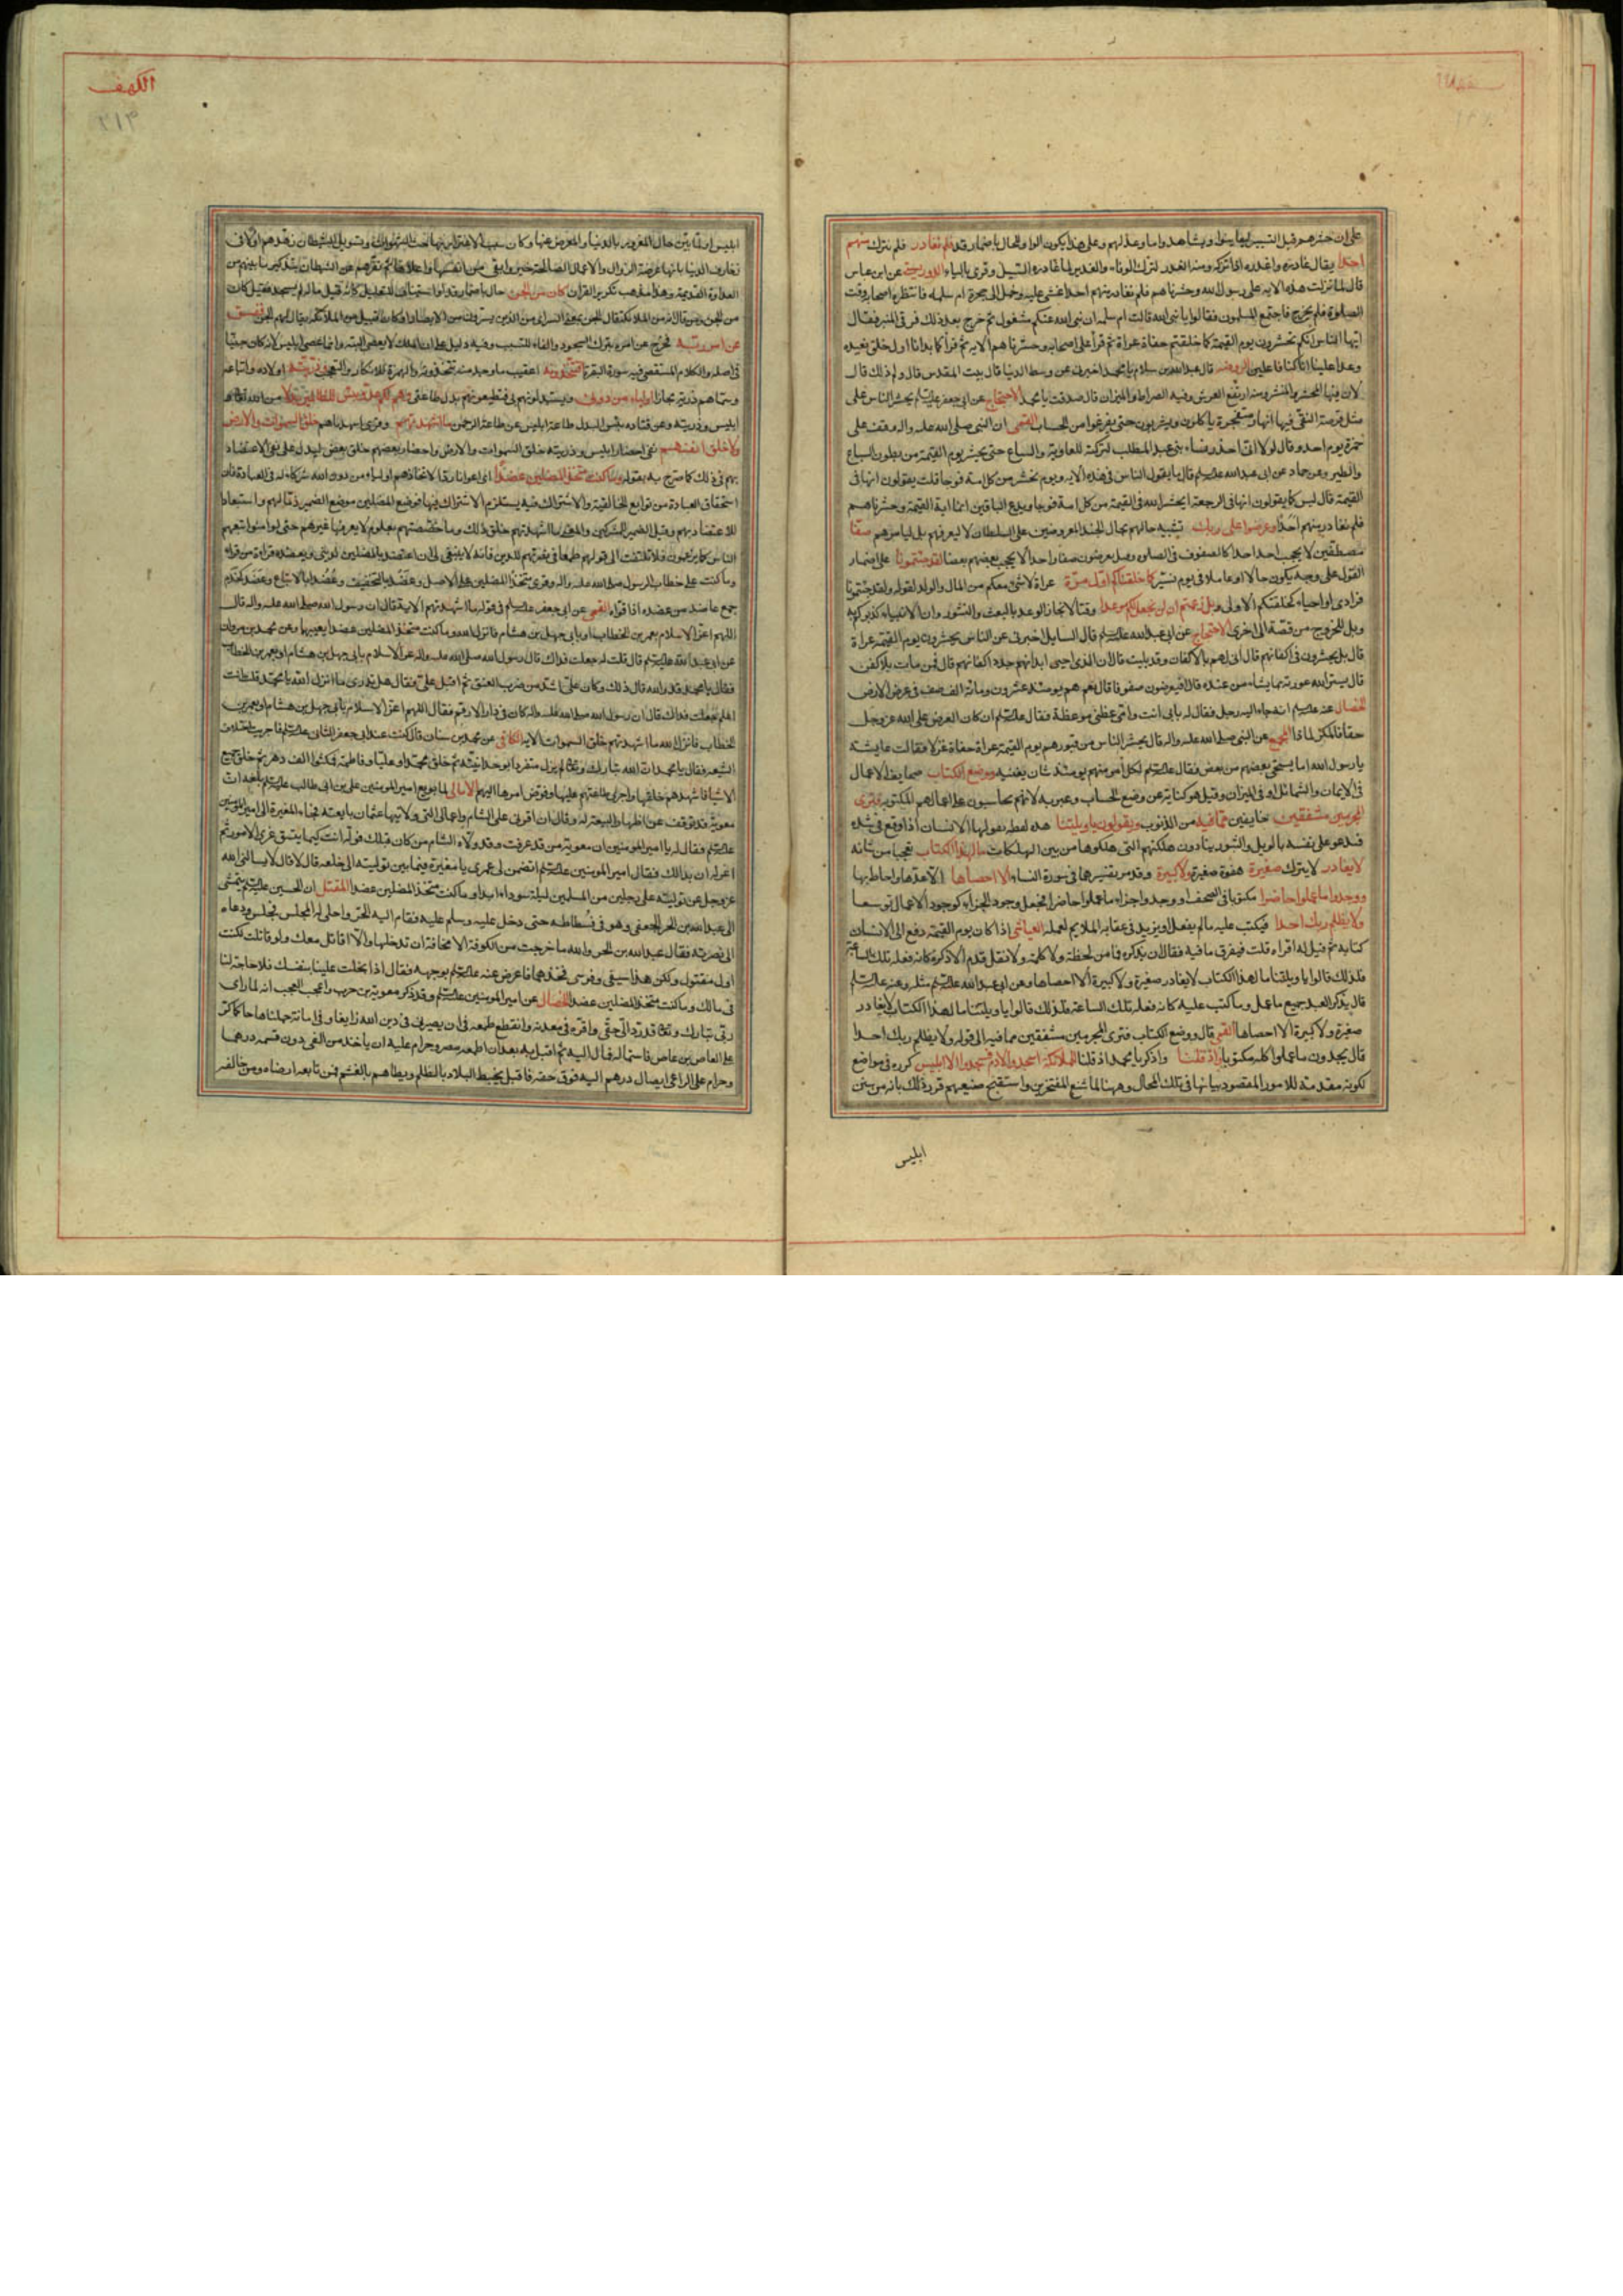 على ان حشرهم قبل التسيير ليعاينوا ويشاهدوا ما وعد لهم وعلى هذا يكون الواو للحال باضمار قد فلم نغادر فلم نترك منهم
احدا يقال غادره واغدره اذا تركه ومنه الغدر لترك الوفاء والغدير لما غادره السيل وقرئ بالياء عن ابن عباس
قال لما نزلت هذه الاية على رسول الله وحشرناهم فلم نغادر منهم احدا غشى عليه وحمل الى حجرة ام سلمه فانتظره اصحابه وقت
الصلوة فلم يخرج فاجتمع المسلمون فقالوا يا نبى الله قالت ام سلمه ان نبى الله عنكم مشغول ثم خرج بعد ذلك فرقى المنبر فقال
ايها الناس انكم تحشرون يوم القيمة كما خلقتم حفاة عراة ثم قرأ على اصحابه وحشرناهم الاية ثم قرأ كما بدانا اول خلق نعيده
وعدا علينا انا كنا فاعلين قال عبد الله بن سلام يا محمد اخبرنى عن وسط الدنيا قال بيت المقدس قال ولم ذلك قال
لان فيها المحشر والمنشر ومنه ارتفع العرش وفيه الصراط والميزان قال صدقت يا محمد الاحتجاج عن ابى جعفر يحشر الناس على
مثل قرصة النقى فيها انهار متفجرة ياكلون ويشربون حتى يفرغوا من الحساب القمى ان النبى صلى الله عليه واله وقف على
حمزة يوم احد وقال لولا انى احذر نساء بنى عبد المطلب لتركته للعاوية والسباع حتى يحشر يوم القيمة من بطون السباع
والطير وعن حماد عن ابى عبد الله قال ما يقول الناس فى هذه الاية ويوم نحشر من كل امة فوجا قلت يقولون انها فى
القيمة قال ليس كما يقولون انها فى الرجعة ايحشر الله فى القيمة من كل امة فوجا ويدع الباقين انما اية القيمة وحشرناهم
فلم نغادر منهم احدا وعرضوا على ربك تشبيه حالهم بحال الجند المعروضين على السلطان لا ليعرفهم بل ليامرهم صفا
مصطفين لا يحجب احد احدا لقد جئتمونا على اضمار
القول على وجه يكون حالا او عاملا فى يوم نسير كما خلقناكم اول مرة عراة لا شئ معكم من المال والولد لقوله ولقد جئتمونا
فرادى او احياء كخلقتكم الاولى بل زعمتم ان لن نجعل لكم موعدا وقتا لانجاز الوعد بالبعث والنشور وان الانبياء كذبوكم به
وبل للخروج من قصة الى اخرى الاحتجاج عن ابى عبد الله قال السايل اخبرنى عن الناس يحشرون يوم القيمة عراة
قال بل يحشرون فى اكفانهم قال انى لهم بالاكفان وقد بليت قال ان الذى احيى ابدانهم جدد اكفانهم قال فمن مات بلا كفن
قال يستر الله عورته بما يشاء من عنده قال افيعرضون صفوفا قال نعم هم يومئذ عشرون ومائة الف صف فى عرض الارض
الخصال عنه انه جاء اليه رجل فقال له بابى انت وامى عظنى موعظة فقال ان كان العرض على الله عز وجل
حقا فالمكر لماذا المجمع عن النبى صلى الله عليه واله قال يحشر الناس من قبورهم يوم القيمة عراة حفاة غرلا فقالت عايشة
يا رسول الله اما يستحى بعضهم من بعض فقال لكل امرء منهم يومئذ شان يغنيه ووضع الكتاب صحايف الاعمال
فى الايمان والشمائل او فى الميزان وقيل هو كناية عن وضع الحساب وعبر به لانهم يحاسبون على اعمالهم المكتوبة فترى
المجرمين مشفقين خايفين مما فيه من الذنوب ويقولون يا ويلتنا هذه لفظة يقولها الانسان اذا وقع فى شدة
فيدعو على نفسه بالويل والثبور ينادون هلكتهم التى هلكوها من بين الهلكات مال هذا الكتاب تعجبا من شانه
لا يغادر لا يترك صغيرة هفوة صغيرة ولا كبيرة وقد مر تفسيرها فى سورة النساء الا احصاها الا عدها واحاط بها
ووجدوا ما عملوا حاضرا مكتوبا فى الصحف او وجدوا جزاء ما عملوا حاضرا فجعل وجود الجزاء كوجود الاعمال توسعا
ولا يظلم ربك احدا فيكتب عليه ما لم يفعل او يزيد فى عقابه الملايم لعمله العياشى اذا كان يوم القيمة دفع الى الانسان
كتابه ثم قيل له اقراء قلت فيعرف ما فيه فقال ان يذكره فما من لحظة ولا كلمة ولا نقل قدم الا ذكره كانه فعله تلك الساعة
فلذلك قالوا يا ويلتنا ما لهذا الكتاب لا يغادر صغيرة ولا كبيرة الا احصاها وعن ابى عبد الله مثله وعنه
قال يذكر العبد جميع ما عمل وما كتب عليه كانه فعله تلك الساعة فلذلك قالوا يا ويلتنا ما لهذا الكتاب لا يغادر
صغيرة ولا كبيرة الا احصاها القمى قال ووضع الكتاب فترى المجرمين مشفقين مما فيه الى قوله ولا يظلم ربك احدا
قال يجدون ما عملوا كله مكتوبا واذ قلنا واذكر يا محمد اذ قلنا للملائكة اسجدوا لادم فسجدوا الا ابليس كرره فى مواضع
لكونه مقدمة للامور المقصود بيانها فى تلك المحال وههنا لما شنع المفتخرين واستقبح صنيعهم قرر ذلك بانه من سنن
ابليس
الكهف
٢١٣
ابليس او لما بين حال المغرور بالدنيا والمعرض عنها وكان سبب الاغترار بها حب الشهوات وتسويل الشيطان زهدهم اولا فى
زخارف الدنيا بانها عرضة الزوال والاعمال الصالحة خير وابقى من انفسها واعلاها ثم نفرهم عن الشيطان بتذكير ما بينهم من
العداوة القديمة وهذا مذهب تكرير القران كان من الجن حال باضمار قد او استيناف للتعليل كانه قيل ما له لم يسجد فقيل كان
من الجن ففسق
عن امر ربه فخرج عن امره بترك السجود والفاء للتسبب وفيه دليل على ان الملك لا يعصى البتة وانما عصى ابليس لانه كان جنيا
فى اصله والكلام المستقصى فيه سورة البقرة افتتخذونه اعقيب ما وجد منه تتخذونه والهمزة للانكار والتعجب وذريته اولاده واتباعه
وسماهم ذرية مجازا اولياء من دونى ويستبدلونهم بى فتطيعونهم بدل طاعتى وهم لكم عدو بئس للظالمين بدلا من الله تعالى
ابليس وذريته وعن قتاده بئس البدل طاعة ابليس عن طاعة الرحمن ما اشهدتهم وقرئ اشهدناهم خلق السموات والارض
ولا خلق انفسهم نفى احضار ابليس وذريته خلق السموات والارض واحضار بعضهم خلق بعض ليدل على نفى الاعتضاد
بهم فى ذلك كما صرح به بقوله وما كنت متخذ المضلين عضدا اى اعوانا ردا لاتخاذهم اولياء من دون الله شركاء له فى العبادة فان
استحقاق العبادة من توابع الخالقية والاشتراك فيه يستلزم الاشتراك فيها فوضع المضلين موضع الضمير ذما لهم واستبعادا
للاعتضاد بهم وقيل الضمير للمشركين والمعنى ما اشهدتهم خلق ذلك وما خصصتهم بعلوم لا يعرفها غيرهم حتى لو امنوا تبعهم
الناس كما يزعمون فلا تلتفت الى قولهم طمعا فى نصرتهم للدين فانه لا ينبغى لى ان اعتضد بالمضلين لدينى ويعضده قراءة من قراء
وما كنت على خطاب الرسول صلى الله عليه واله وقرئ متخذا المضلين على الاصل وعضدا بالتخفيف وعضدا بالاتباع وعضد كخدم
جمع عاضد من عضده اذا قواه القمى عن ابى جعفر فى قوله ما اشهدتهم الاية قال ان رسول الله صلى الله عليه واله قال
اللهم اعز الاسلام بعمر بن الخطاب او بابى جهل بن هشام فانزل الله وما كنت متخذ المضلين عضدا يعنيهما وعن محمد بن مروان
عن ابى عبد الله قال قلت له جعلت فداك قال رسول الله صلى الله عليه واله اعز الاسلام بابى جهل بن هشام او بعمر بن الخطاب
فقال يا محمد قد والله قال ذلك وكان على اشد من ضرب العنق ثم اقبل على فقال هل تدرى ما انزل الله يا محمد قلت انت
اعلم جعلت فداك قال ان رسول الله صلى الله عليه واله كان فى دار الارقم فقال اللهم اعز الاسلام بابى جهل بن هشام او بعمر بن
الخطاب فانزل الله ما اشهدتهم خلق السموات الاية الكافى عن محمد بن سنان قال كنت عند ابى جعفر الثانى فاجريت اختلاف
الشيعة فقال يا محمد ان الله تبارك وتعالى لم يزل متفردا بوحدانيته ثم خلق محمدا وعليا وفاطمة فمكثوا الف دهر ثم خلق جميع
الاشياء فاشهدهم خلقها واجرى طاعتهم عليها وفوض امرها اليهم الامالى لما بويع امير المومنين على بن ابى طالب بلغه ان
معوية قد توقف عن اظهار البيعة له وقال ان اقرنى على الشام واعمالى التى ولانيها عثمان بايعته فجاء المغيرة الى امير المومنين
فقال له يا امير المومنين ان معوية من قد عرفت وقد ولاه الشام من كان قبلك فوله انت كيما يتسق عرى الامور ثم
اعزله ان بدا لك فقال امير المومنين اتضمن لى عمرى يا مغيرة فيما بين توليته الى خلعه قال لا قال لا يسالنى الله
عز وجل عن توليته على رجلين من المسلمين ليلة سوداء ابدا وما كنت متخذ المضلين عضدا المقتل ان الحسين يتمشى
الى عبد الله بن الحر الجعفى وهو فى فسطاطه حتى دخل عليه وسلم عليه فقام اليه الحر واحلى له المجلس فجلس ودعاه
الى نصرته فقال عبد الله بن الحر والله ما خرجت من الكوفة الا مخافة ان تدخلها ولا اقاتل معك ولو قاتلت لكنت
اول مقتول ولكن هذا سيفى وفرسى فخذهما فاعرض عنه بوجهه فقال اذا بخلت علينا بنفسك فلا حاجة لنا
فى مالك وما كنت متخذ المضلين عضدا الخصال عن امير المومنين وقد ذكر معوية بن حرب واعجب العجب انه لما راى
ربى تبارك وتعالى قد رد الى حقى واقره فى معدنه وانقطع طمعه فى ان يصير فى دين الله رابعا وفى امانة حملناها حاكما كر
على العاص بن عاص فاستماله فمال اليه ثم اقبل به بعد ان اطعمه مصر وحرام عليه ان ياخذ من الفئ دون قسمه درهما
وحرام على الراعى ايصال درهم اليه فوق حقه فاقبل يخبط البلاد بالظلم ويطاها بالغشم فمن تابعه ارضاه ومن خالفه